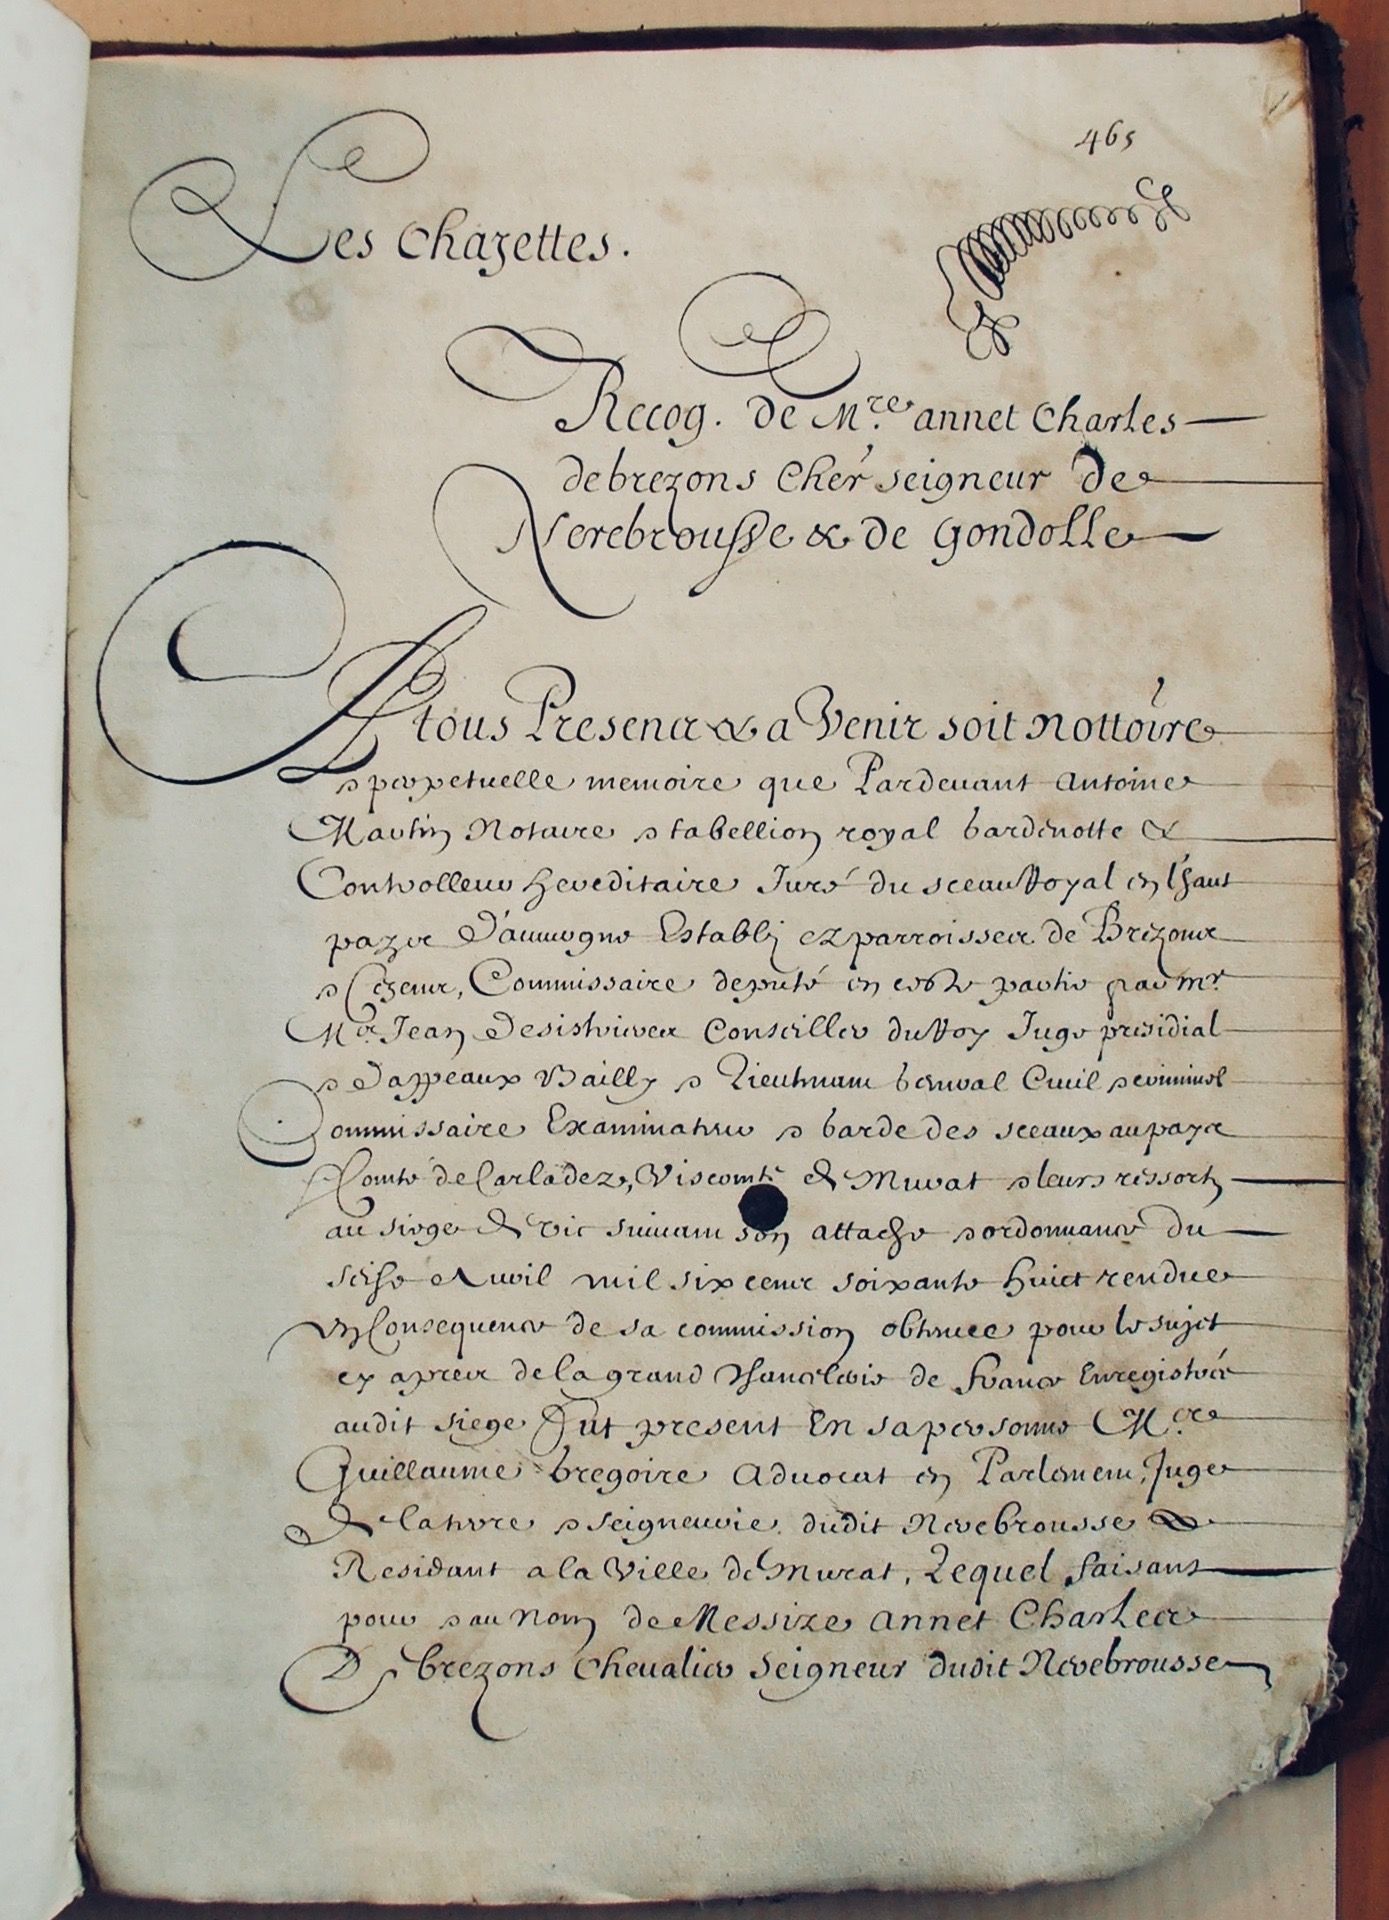 465
Les Chazettes.
Recog. de Mre. annet Charles
debrezons Cher seigneur de
Nerebrousse & de Gondolle
A tous Presens & a Venir soit nottoire
& perpetuelle memoire que Pardeuant Antoine
Martin Notaire & tabellion royal gardenotte &
Controlleur hereditaire Juré du sceau Royal en lhaut
pays d'auuergne Estably ez parroisses de Brezons
& Cezens, Commissaire deputé en ceste partie par mr.
Me. Jean Desistrieres Conseiller du Roy Juge presidial
& d'appeaux Bailly & Lieutenant general Ciuil & criminel
Commissaire Examinateur & garde des sceaux au pays
& Comté de Carladez, Viscomté de Murat & leurs ressorts
au siege de vic suiuant son attache & ordonnance du
seise Auril mil six cens soixante huict rendue
en Consequence de sa commission obtenue pour le sujet
cy apres de la grand Chancelerie de france Enregistrée
audit siege fut present En sa personne Me.
Guillaume Gregoire Aduocat en Parlement, Juge
de la terre & seigneurie dudit Nerebrousse
Residant a la Ville de Murat, Lequel faisant
pour & au Nom de Messire Annet Charles
De brezons Cheualier Seigneur dudit Nerebrousse